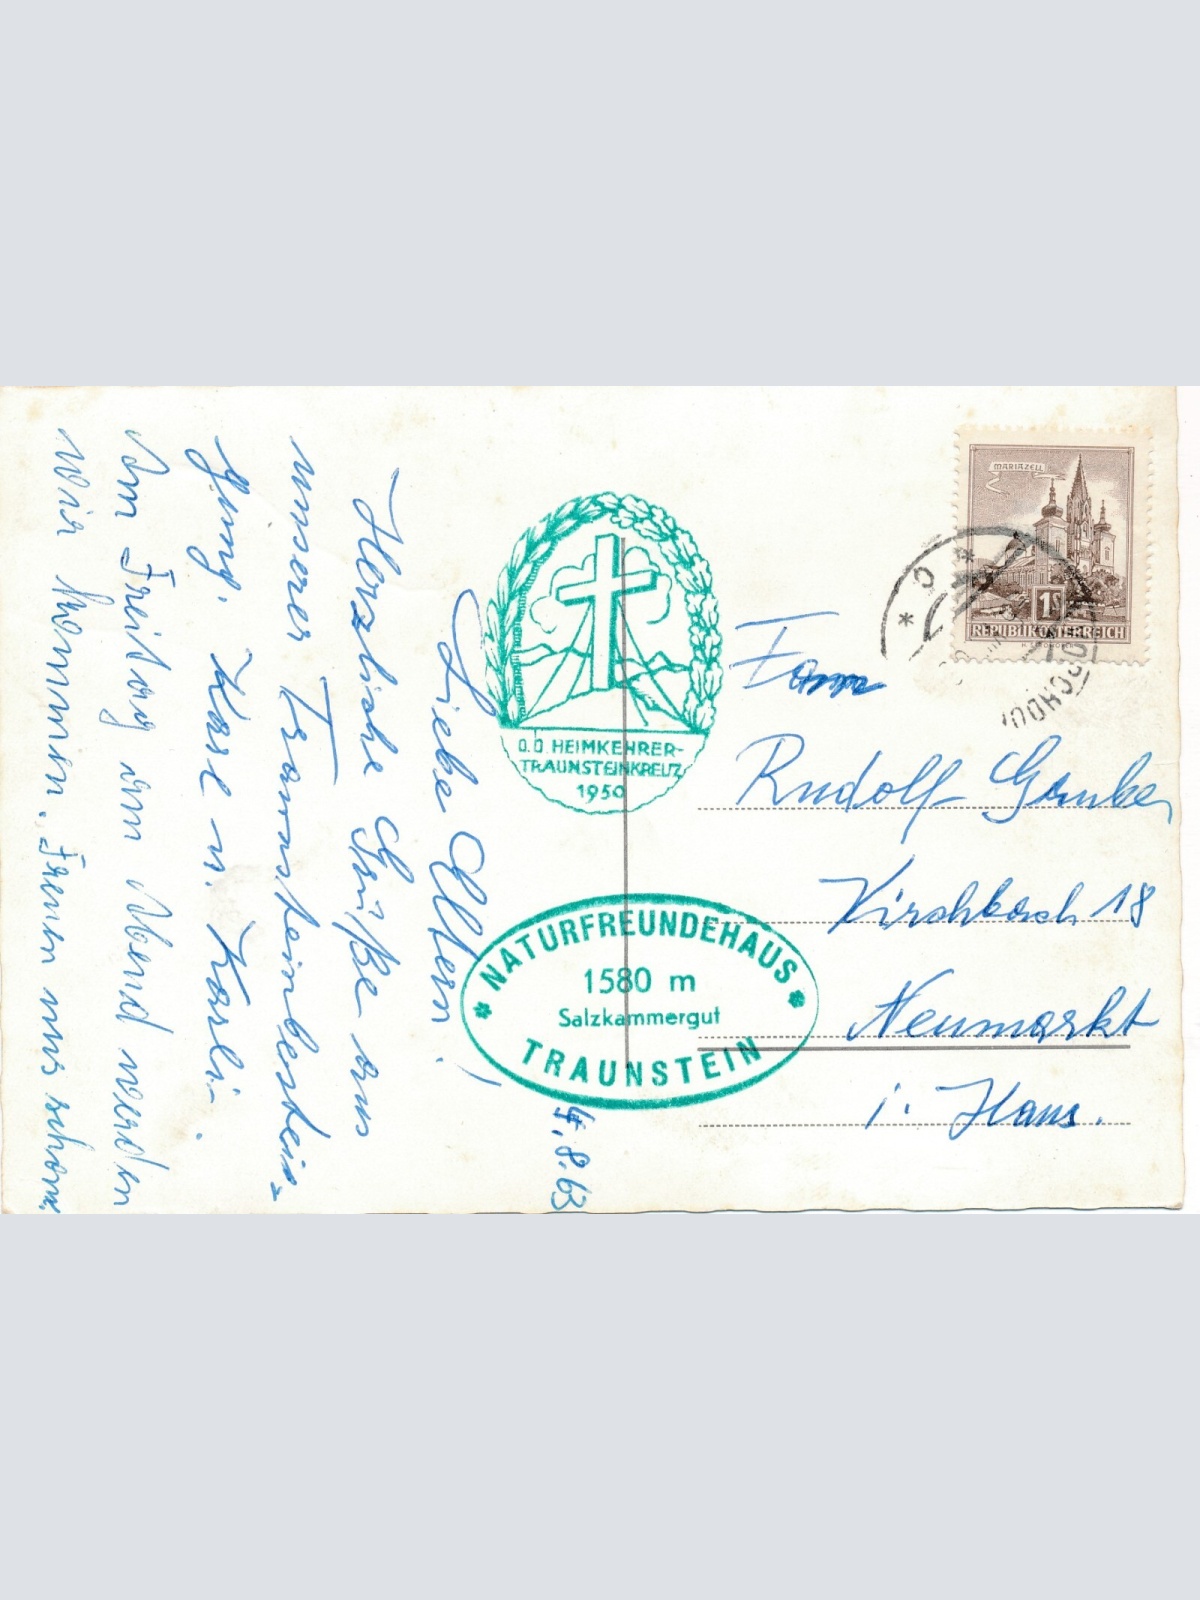 4.8.63
Liebe Eltern!
Herzliche Grüße aus
unserer Traunsteinbestei=
gung. Karl u. Karli.
Am Freitag am Abend werden
wir kommen. Freuen uns schon.
O.Ö. HEIMKEHRER-
TRAUNSTEINKREUZ
1950
* NATURFREUNDEHAUS *
1580 m
Salzkammergut
TRAUNSTEIN
MARIAZELL
1S
REPUBLIK ÖSTERREICH
Fam
Rudolf
Kirchbach 18
Neumarkt
i. Haus.